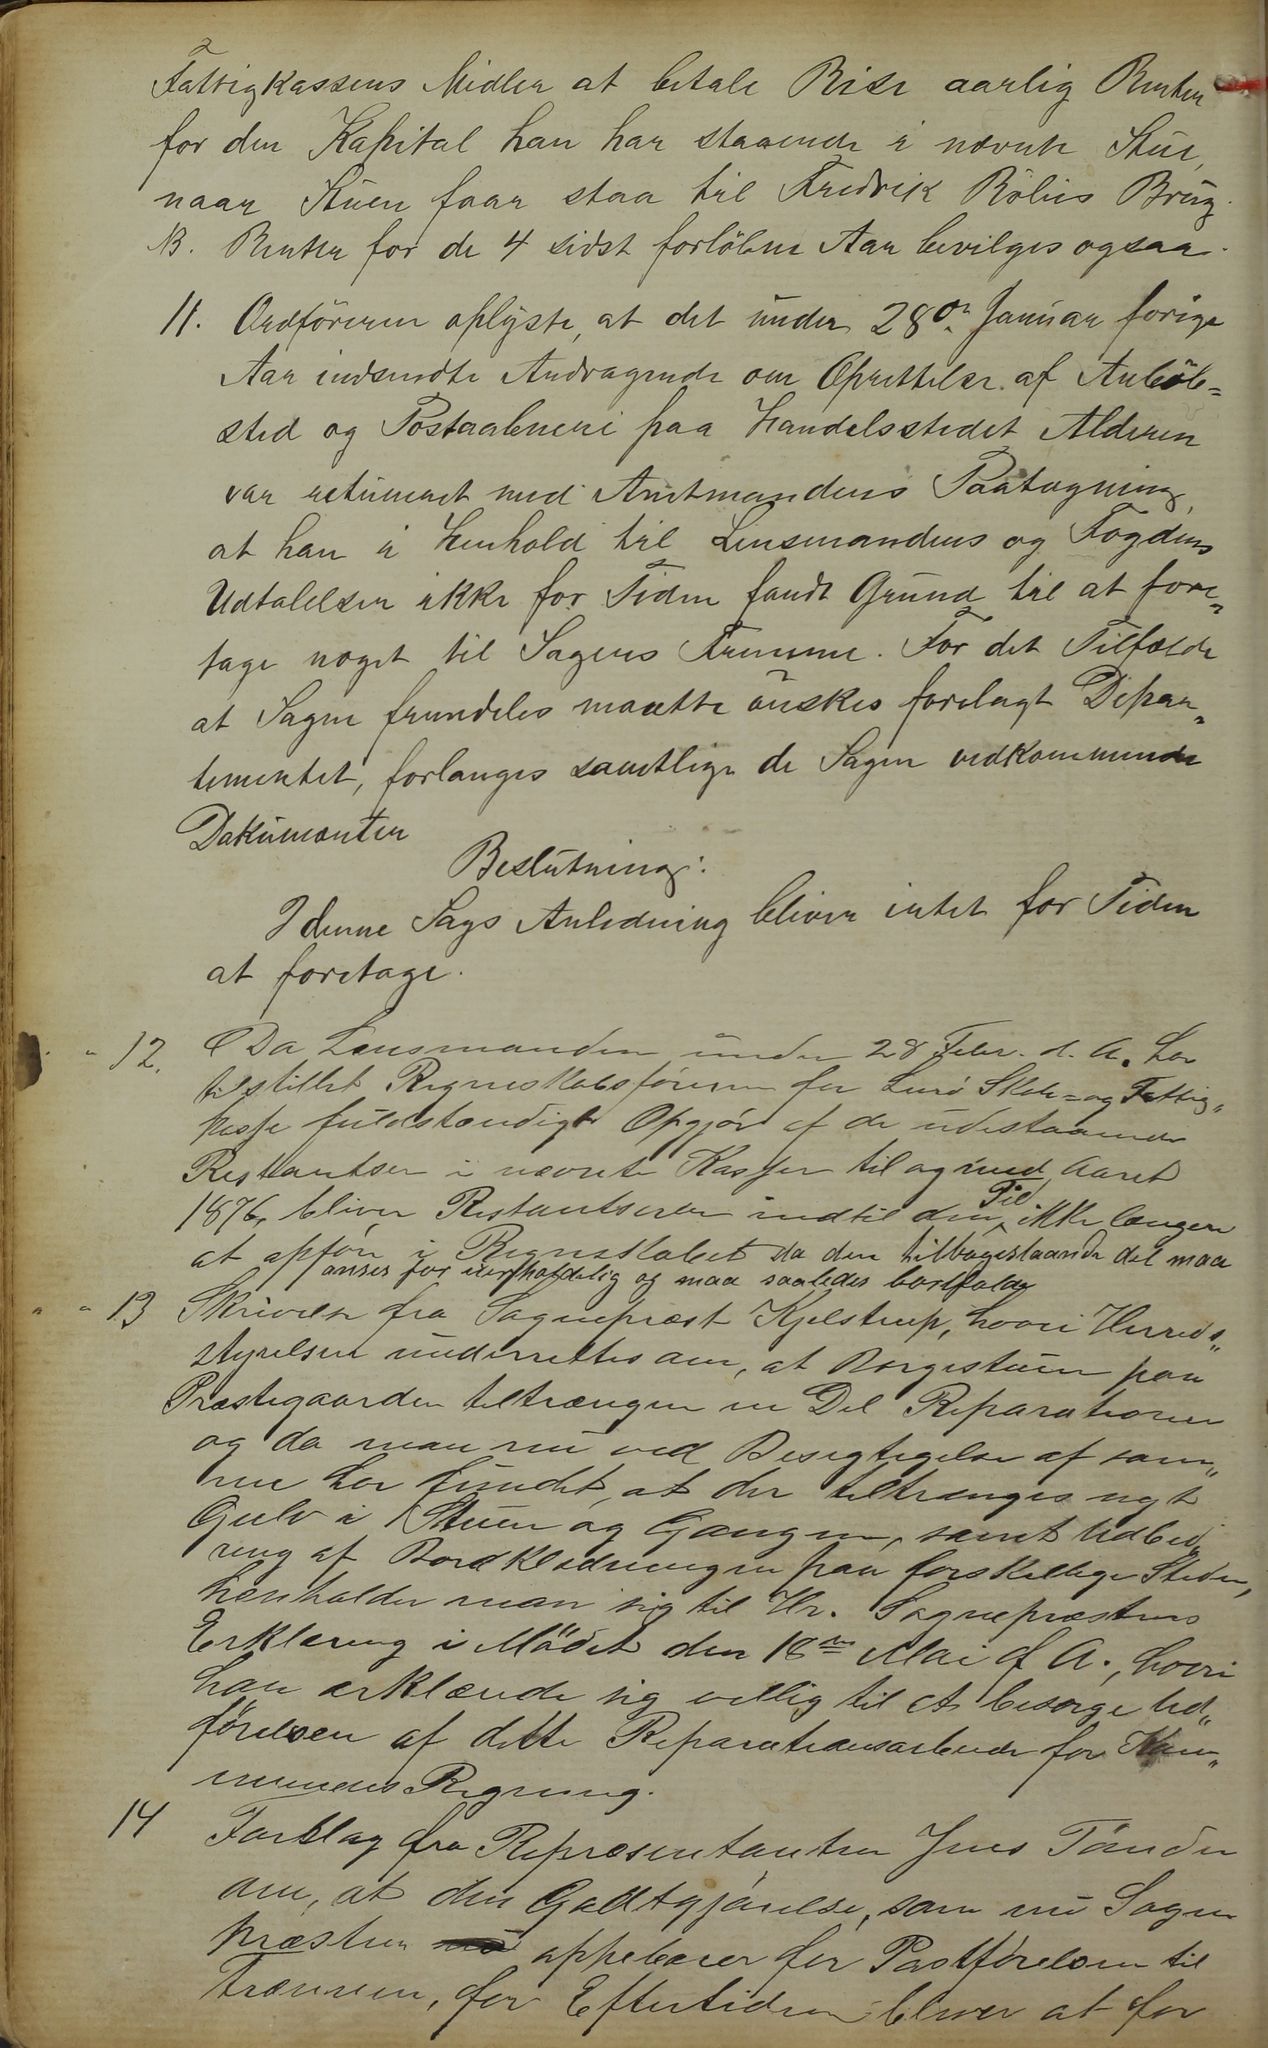 Fattigkassens Midler at betale Risr aarlig Renten
for den Kapital han har staaende i nævnte Stue,
naar Stuen faar staa til Fredrik Röliis Brug.
NB. Renten for de 4 sidst forlöbne Aar bevilges ogsaa.
11. Ordföreren oplyste, at det under 28de Januar forige
Aar indsendte Andragende om Oprettelse af Anlöb=
sted og Postaabneri paa Handelsstedet Alderen
var returneret med Amtmandens Paategning,
at han i Henhold til Lensmandens og Fogdens
Udtalelser ikke for Tiden fandt Grund til at fore„
tage noget til Sagens Fremme. For det Tilfælde
at Sagen fremdeles maatte önskes forelagt Depar„
tementet, forlanges samtlige de Sagen vedkommende
Dokumenter
Beslutning:
I denne Sags Anledning bliver intet for Tiden
at foretage.
" 12. Da Lensmanden under 28 Febr. d. A. har
tilstillet Regnskabsföreren for Lurö Skole= og Fattig„
kasse fuldstændigt Opgjör af de udestaaende
Restantser i nævnte Kasser til og med Aaret
1876, bliver Restantserne indtil den Tid ikke længere
at opföre i Regnskabet da den tilbagestaaende del maa
anses for uerholdelig og maa saaledes bortfalde
" " 13 Skrivelse fra Sognepræst Kjelstrup, hvori Herreds„
styrelsen underrettes om, at Borgestuen paa
Præstegaarden tiltrænger en Del Reparationer
og da man nu ved Besigtigelse af sam„
me har fundet, at der tiltrænges nyt
Gulv i Stuen og Gangen, samt Udbed„
ring af Bordklædningen paa forskellige Steder,
henholder man sig til Hr. Sognepræstens
Erklæring i Mödet den 18de Mai d. A., hvori
han erklærede sig villig til at besørge Ud„
förelsen af dette Reparationsarbeide for Kom„
munens Regning.
14 Forslag fra Repræsentanten Jens Tönder
om, at den Godtgjörelse, som nu Sogne
præsten oppebærer for Postförelsen til
Trænen, for Eftertiden bliver at for